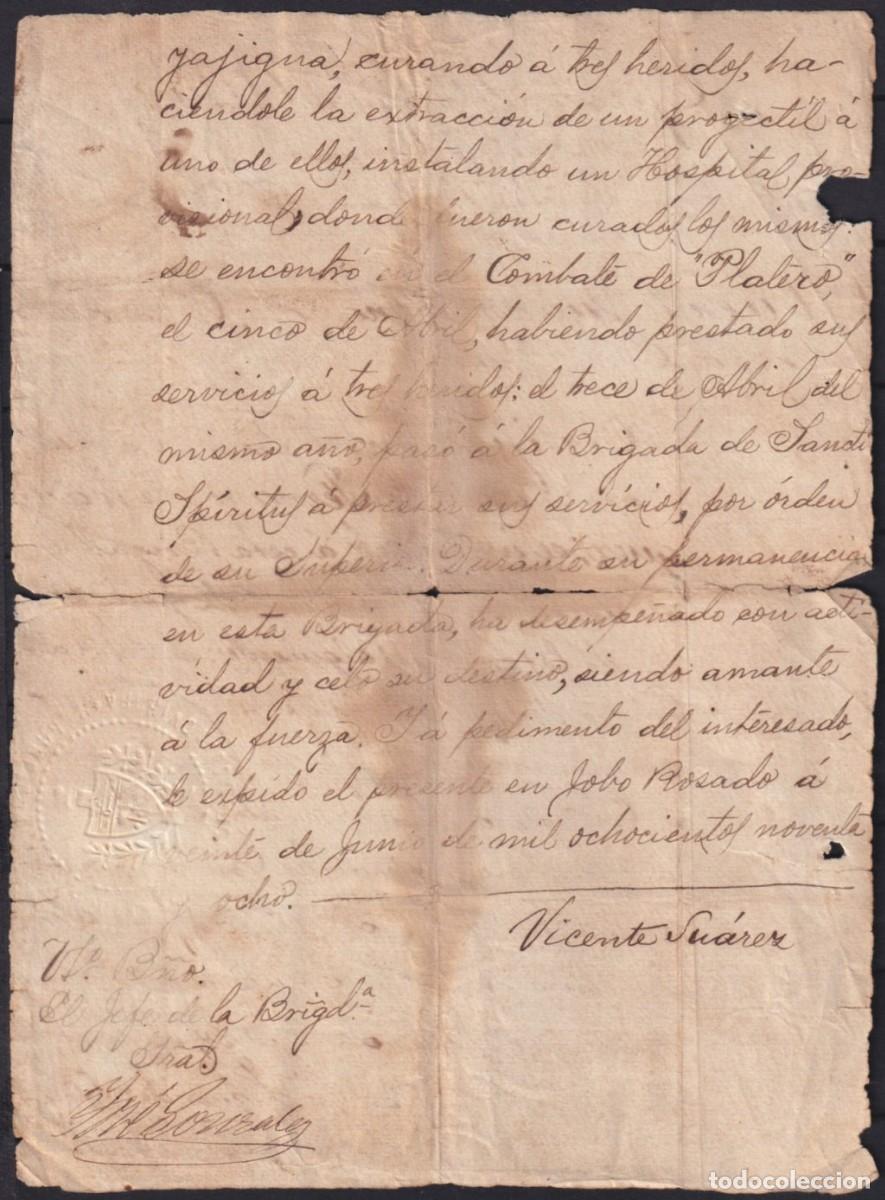 yajigua, curando á tres heridos, ha-
ciendole la extracción de un proyectil á
uno de ellos, instalando un Hospital pro-
visional, donde fueron curados los mismos:
se encontró en el Combate de "Platero",
el cinco de Abil, habiendo prestado sus
servicios á tres heridos: el trece de Abril del
mismo año, pasó á la Brigada de Sancti
Spíritus á prestar sus servicios, por órden
de su Superior. Durante su permanencia
en esta Brigada, ha desempeñado con acti-
vidad y celo su destino, siendo amante
á la fuerza. I á pedimento del interesado,
le expido el presente en Jobo Rosado á
veinte de Junio de mil ochocientos noventa
y ocho.
Vicente Suárez
Vto. Bño.
El Jefe de la Brigd.a
Gral.
González
todocoleccion